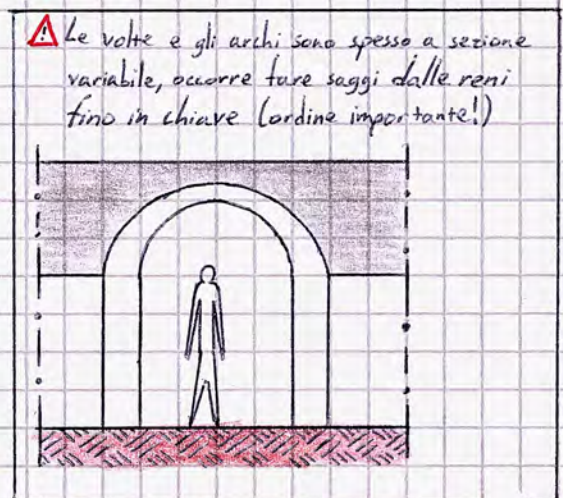 Le volte e gli archi sono spesso a sezione
variabile, occorre fare saggi dalle reni
fino in chiave (ordine importante!)